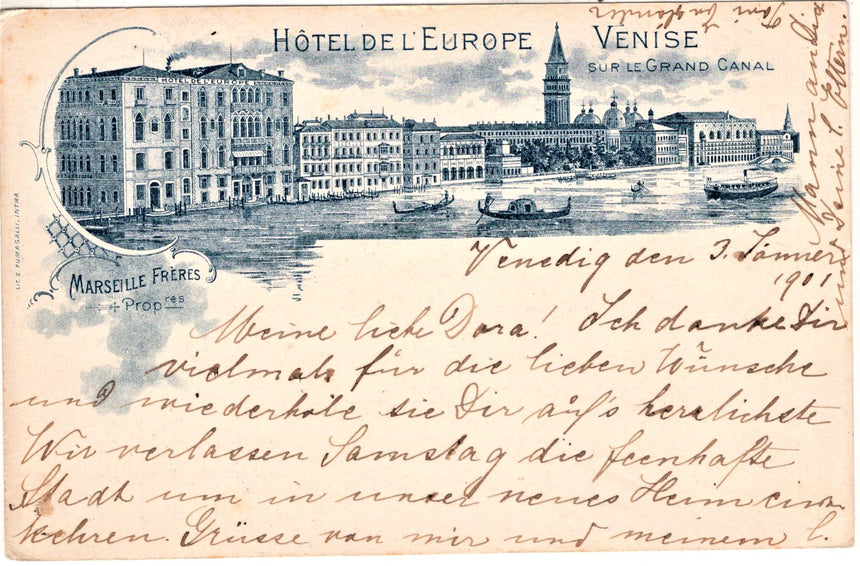 HÔTEL DE L'EUROPE VENISE
SUR LE GRAND CANAL
HOTEL DE L'EUROPE
LIT. E. FUMAGALLI, INTRA
MARSEILLE FRÈRES
Propres
Venedig den 3. Jänner
1901
Meine liebe Dora! Ich danke Dir
vielmals für die lieben Wünsche
und wiederhole sie Dir auf's herzlichste
Wir verlassen Samstag die feenhafte
Stadt um in unser neues Heim einzu-
kehren. Grüsse von mir und meinem l.
Mann an Dich
und Deine l. Eltern.